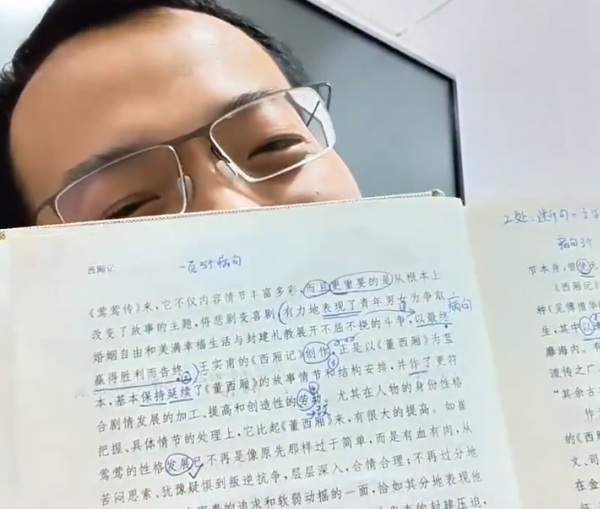 西厢记
一页5个病句
《莺莺传》来，它不仅内容情节丰富多彩，而且更重要的是从根本上
改变了故事的主题，将悲剧变喜剧，有力地表现了青年男女为争取
婚姻自由和美满幸福生活与封建礼教展开不屈不挠的斗争，以最终
病句
赢得胜利而告终。王实甫的《西厢记》创作，正是以《董西厢》为蓝
本，基本保持延续了《董西厢》的故事情节和结构安排，并作了更符
合剧情发展的加工、提高和创造性的劳动。尤其在人物的身份性格
把握、具体情节的处理上，它比起《董西厢》来，有很大的提高。如崔
莺莺的性格发展已不再是像原先那样过于简单，而是有血有肉，从
苦闷思索、犹豫疑惧到叛逆抗争，层层深入，合情合理；不再过分地
的追求和软弱动摇的一面，恰如其分地表现他
的封建压迫，
2处
病句
节本月，曾
《西厢记》
种《见佛惜
生，其中以
靡海内。有
流传之广
“其余古
作
的《西
文、司
在金